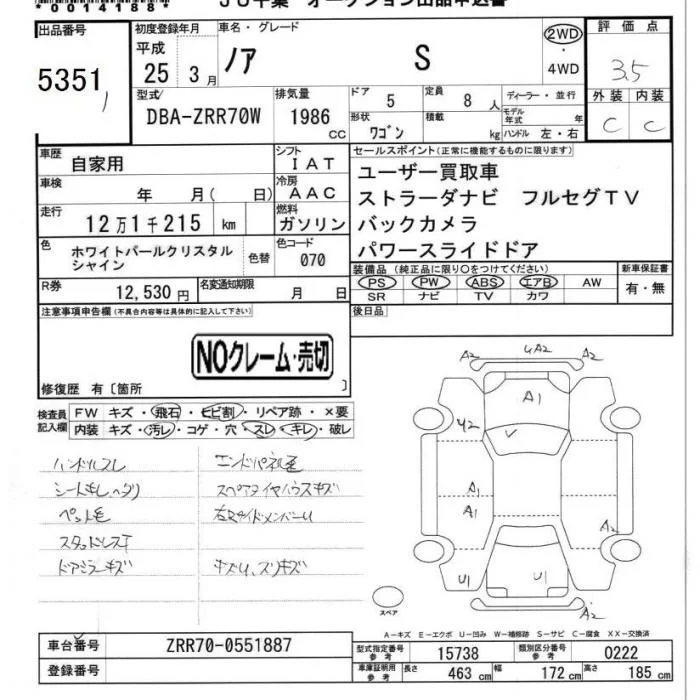 *0014188*
JU千葉 オークション出品申込書
出品番号
5351
初度登録年月
平成
25 3月
車名・グレード
ノア S
2WD
・
4WD
評価点
3.5
外装 内装
C C
型式
DBA-ZRR70W
排気量
1986 CC
ドア 5
定員 8 人
ディーラー・並行
モデル年式 年
形状 ワゴン
積載 kg
ハンドル 左・右
車歴 自家用
シフト IAT
車検 年 月( 日)
冷房 AAC
走行 12万1千215 km
燃料 ガソリン
色 ホワイトパールクリスタル
シャイン
色替
色コード 070
R券 12,530 円
名変通知期限 月 日
セールスポイント(正常に機能するものに限ります)
ユーザー買取車
ストラーダナビ フルセグTV
バックカメラ
パワースライドドア
装備品 (純正品に限り○をつけてください)
新車保証書
PS PW ABS エアB AW
SR ナビ TV カワ
有・無
後日品
注意事項申告欄(不具合内容等は具体的に記入して下さい)
NOクレーム・売切
修復歴 有〔箇所 〕
検査員
記入欄
FW キズ・飛石・ヒビ割・リペア跡・×要
内装 キズ・汚レ・コゲ・穴・スレ・キレ・破レ
ハンドルスレ エンドパネル毛
シートキレヘタリ スペアタイヤハウスキズ
ペット毛 右サイドメンバーU
スタッドレスT
ドアミラーキズ キズU、スリキズ
A2 UA2 A2
A1
Y2
A1
A1
A2
U1 U1
A2
スペア
A-キズ E-エクボ U-凹み W-補修跡 S-サビ C-腐食 XX-交換済
車台番号 ZRR70-0551887
登録番号
型式指定番号
参考 15738
類別区分番号
参考 0222
車庫証明用
参考 長さ 463 cm 幅 172 cm 高さ 185 cm